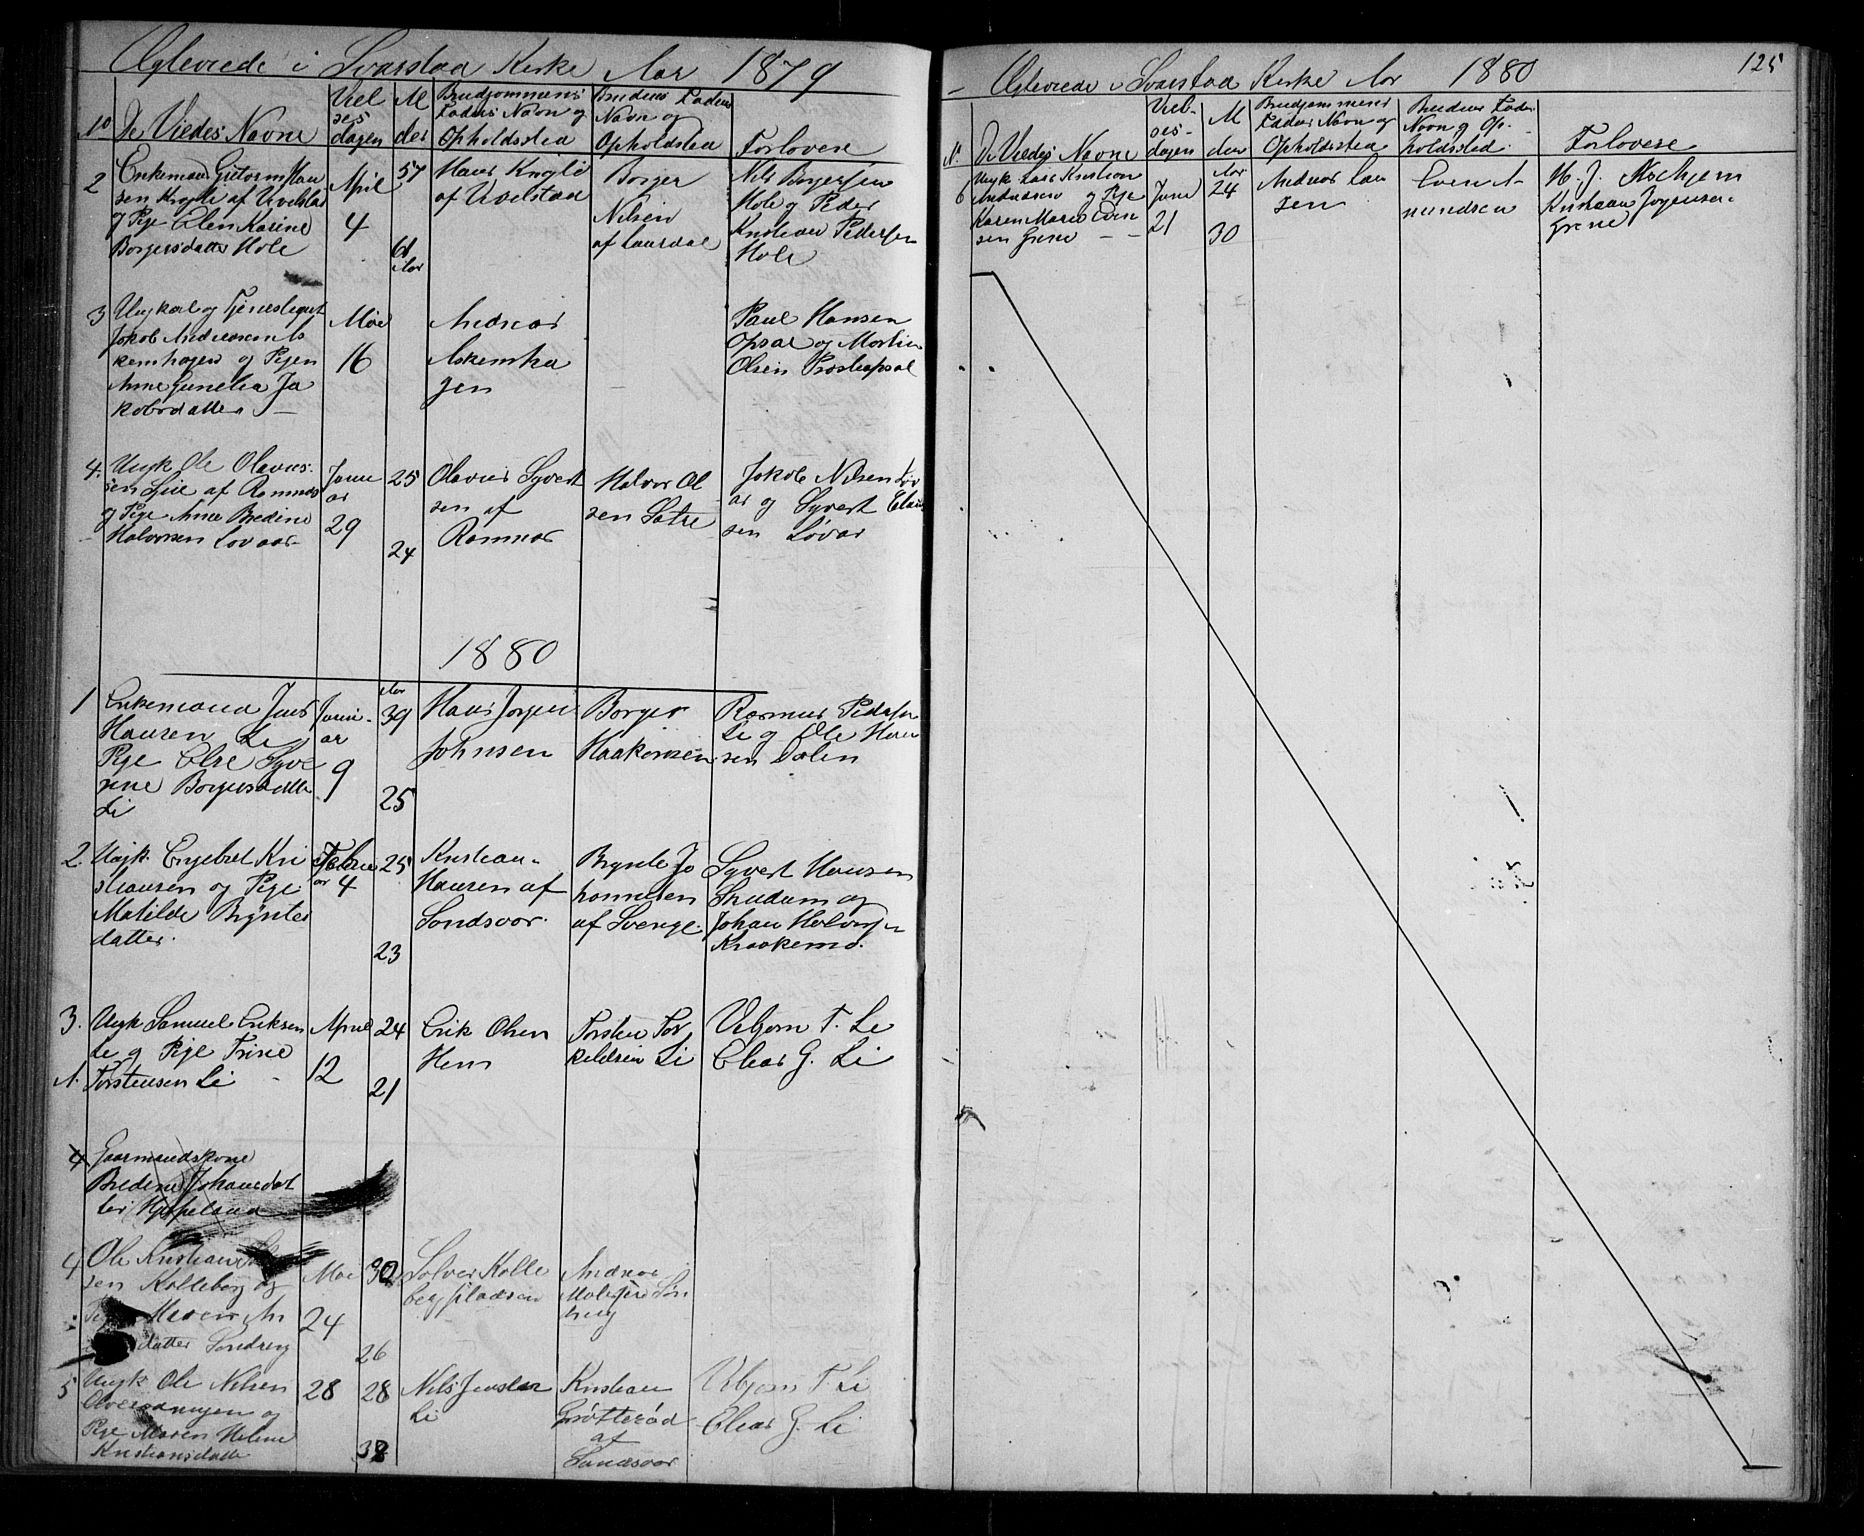 Egteviede i Svarstad Kirke Aar 1879
No De Viedes Navne
Viel
ses
dagen
Al
der
Brudgommens
Faders Navn og
Opholdsstea
Brudens Faders
Navn og
Opholdstea
Forlovere
2
Enkemand Gutorm Han
sen Kryli af Uvelstad
og Pige Elen Karine
Borgersdatter Hole
April
4
57
61
Aar
Hans Krigli
af Uvelstad
Borger
Nilsen
af Laurdal
Nils Borgersen
Hole og Peder
Kristian Pedersen
Hole
3
Ungkarl og
Jakob Andreasen As
kemhagen og Pigen
Anne Gunelia Ja
kobsdatter
Mai
16
Andreas
Askemha
gen
Paul Hansen
Opsal og Martin
Olsen Prosteopsal
4.
Ungk Ole Olavus
sen af Ramnes
og Pige Anne Bredine
Halvorsen Lovaas
Janu
ar
29
25
24
Olavus Syvert
sen af
Ramnes
Halvor Ol
sen Satre
Jakob Nilsen Løv
as og Syvert Claus
sen Løvas
1880
1
Enkemand Jens
Hansen Li
Pige Else Syve
rine Borgersdatter
Li
Janu-
ar
9
Aar
39
25
Hans Jorgen
Johnsen
Borger
Haakonsen
Rasmus Pedersen
Li og Ole Han
sen Dalen
2.
Ungk. Engebret Kri
stiansen og Pige
Matilde Bryntes
datter.
Febru
ar 4
25
23
Kristian
Hansen af
Sandsvær.
Brynte Jo
hannesen
af Sverige.
Syvert Hansen
Skudum og
Johan Halvorsen
Kraakemo.
3.
Ungk Samuel Eriksen
Le og Pige Trine
A. Torstensen Li
April
12
24
21
Erik Olsen
Hem
Torsten Tor
keldsen Li
Vebjorn T. Li
Elias G. Li
4
Gaarmandskone
Bredine Johannesdat
ter Hjapeland
4
Ole Kristian
sen Kolleberg og
Maren An
datter Sondreng
Mai
24
30
26
Solver Kolle
bergpladsen
Andreas
5
Ungk Ole Nilsen
og
Pige Maren Helene
Kristiansdatter
28
28
38
Nils Jensen
Li
Kristian
Grøtterød
af
Sandsvær
Vebjorn T Li
Elias G. Li
125
Egteviede i Svarstad Kirke Aar 1880
N.
De Viedes Navne
Viel-
ses-
dagen
Al
der
Brudgommens
Faders Navn og
Opholdsstea
Brudens Fader
Navn og Op-
holdssted.
Forlovere
6
Ungk. Lars Kristian
Andreasen og Pige
Karen Marie Even
sen Grene
Juni
21
Aar
24
30
Andreas Lar
sen
Even A-
mundsen
H. J. Askjem
Kristian Jørgensen
Grene